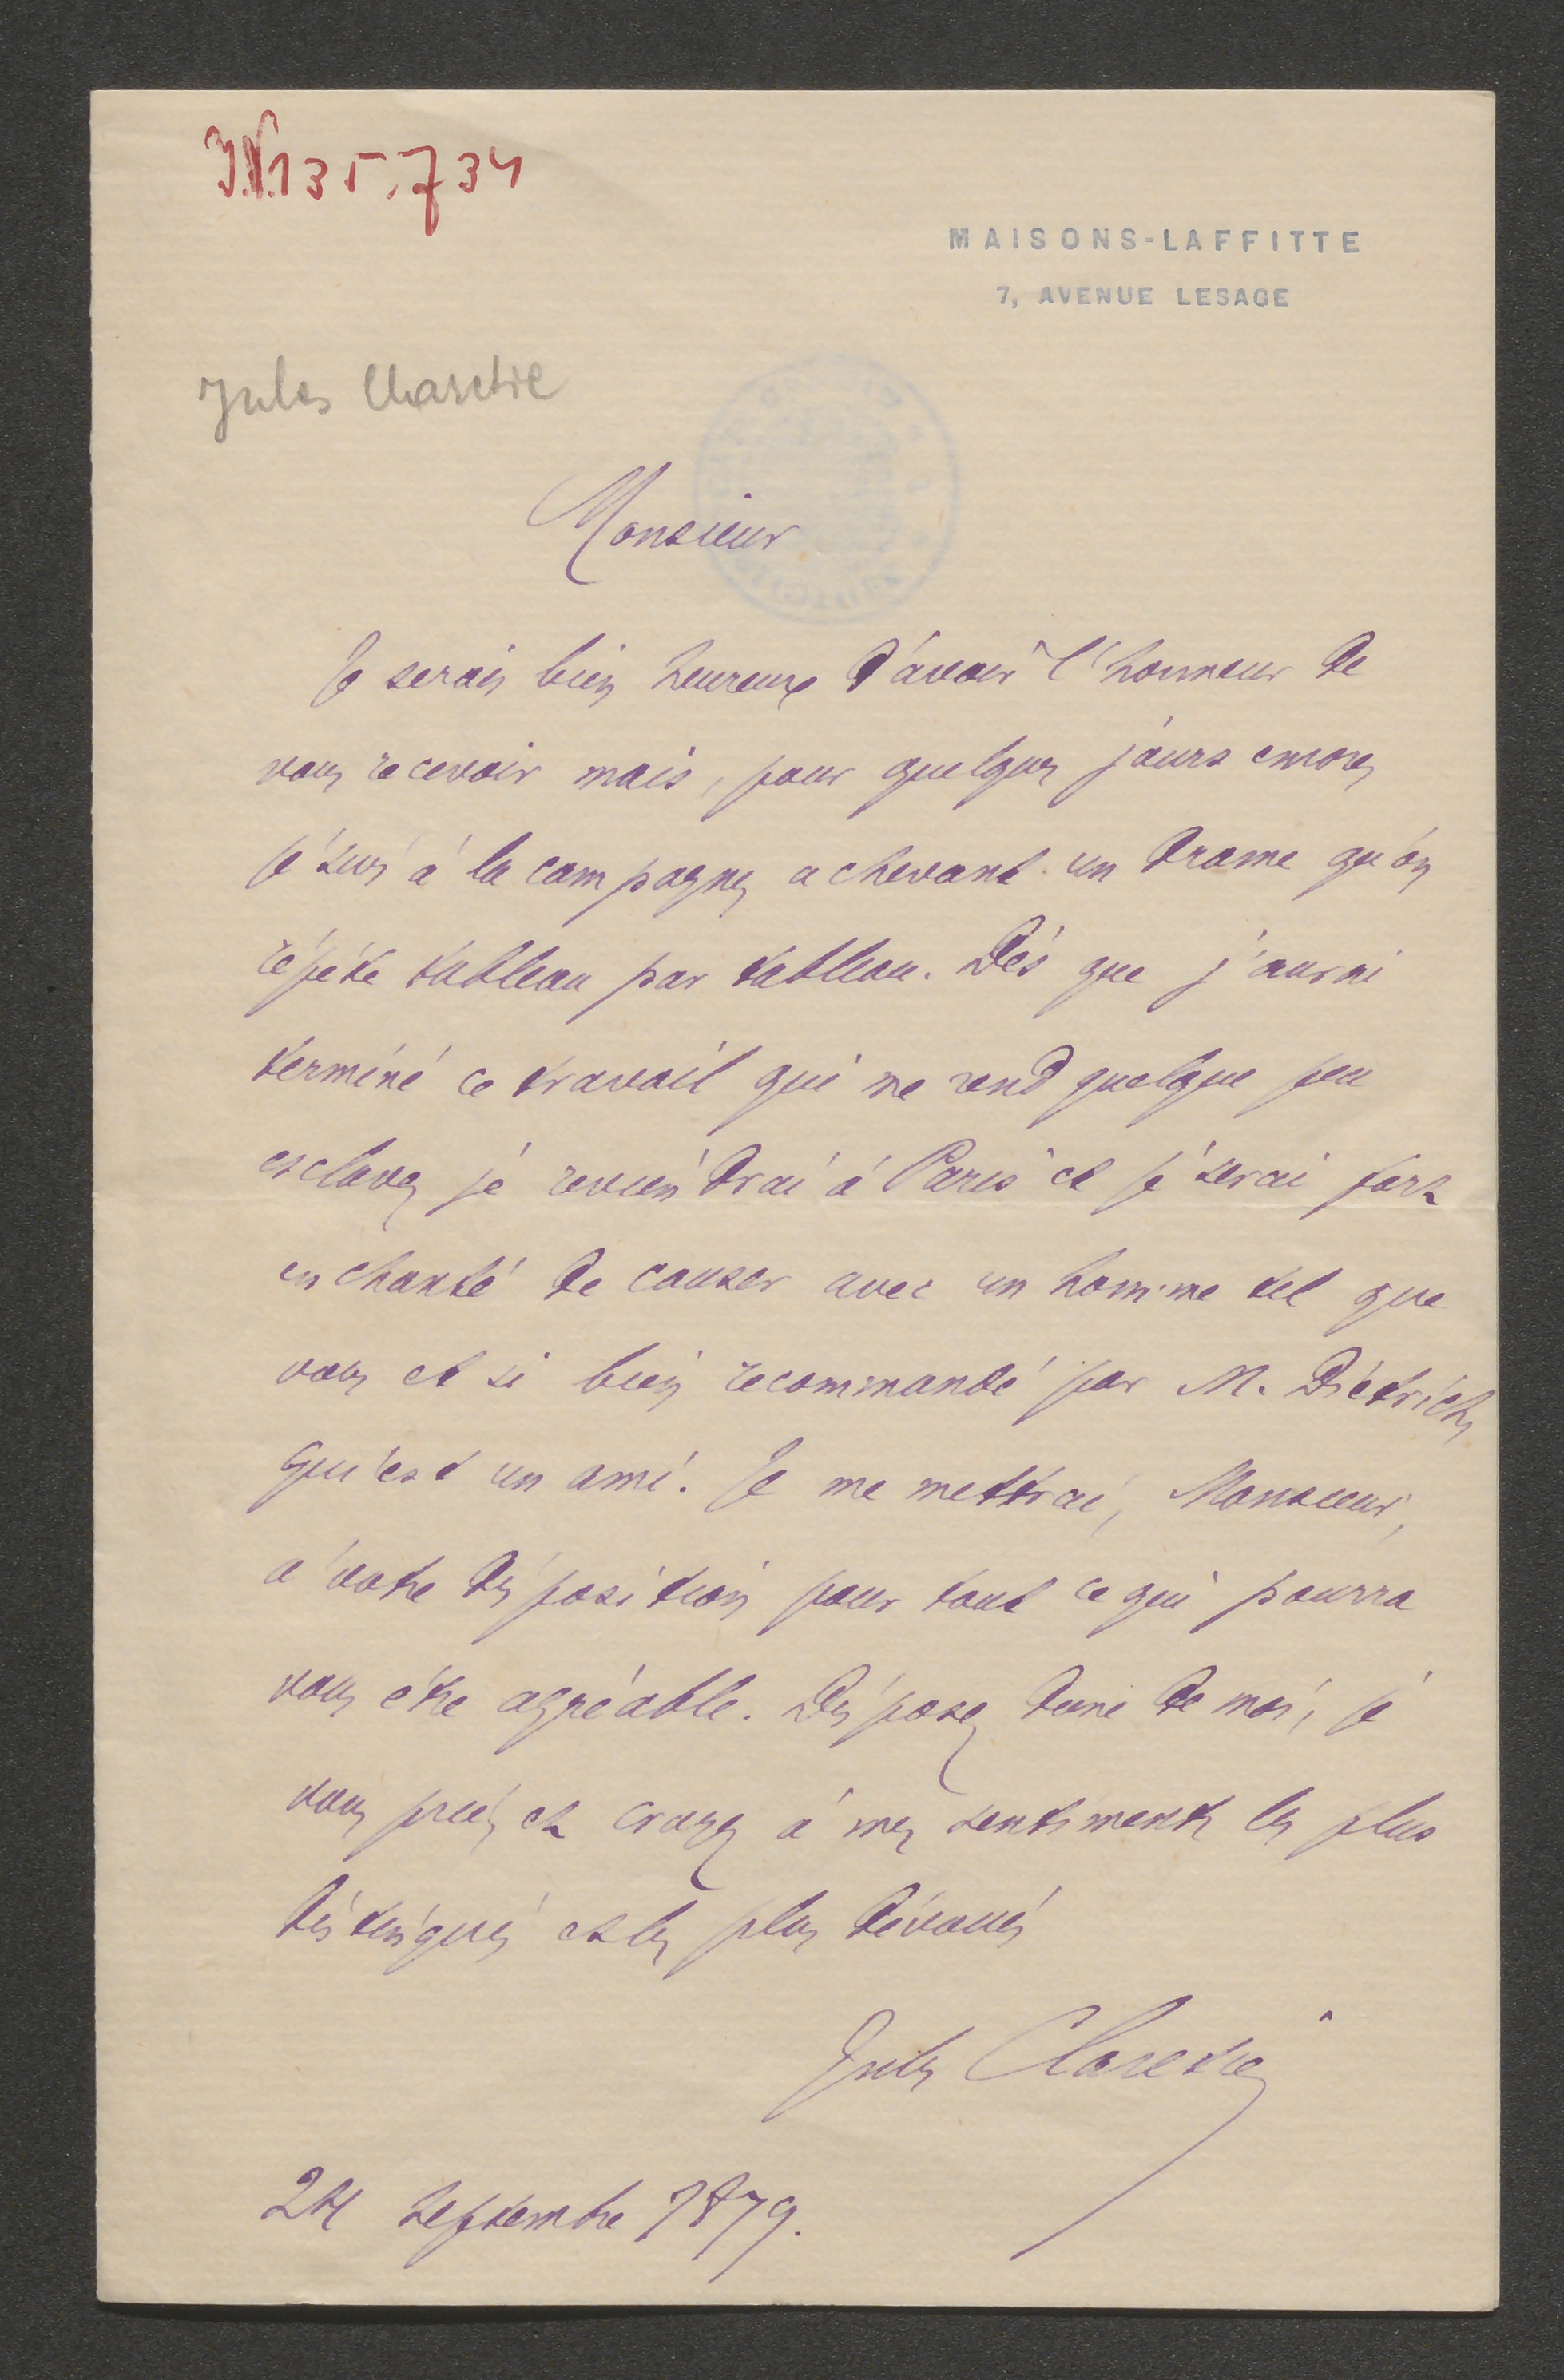 J.N.135.734
MAISONS-LAFFITTE
7, AVENUE LESAGE
Jules Claretie
Monsieur
Je serais bien heureux d'avoir l'honneur de
vous recevoir mais, pour quelques jours encore,
je suis à la campagne, achevant un drame qu'on
répète tableau par tableau. Dès que j'aurai
terminé ce travail qui me rend quelque peu
esclave, je reviendrai à Paris et je serai fort
enchanté de causer avec un homme tel que
vous et si bien recommandé par M. Diétrich,
qui est un ami. Je me mettrai, Monsieur,
à votre disposition pour tout ce qui pourra
vous être agréable. Disposez donc de moi, je
vous prie, et croyez à mes sentiments les plus
distingués et les plus dévoués
Jules Claretie
24 septembre 1879.